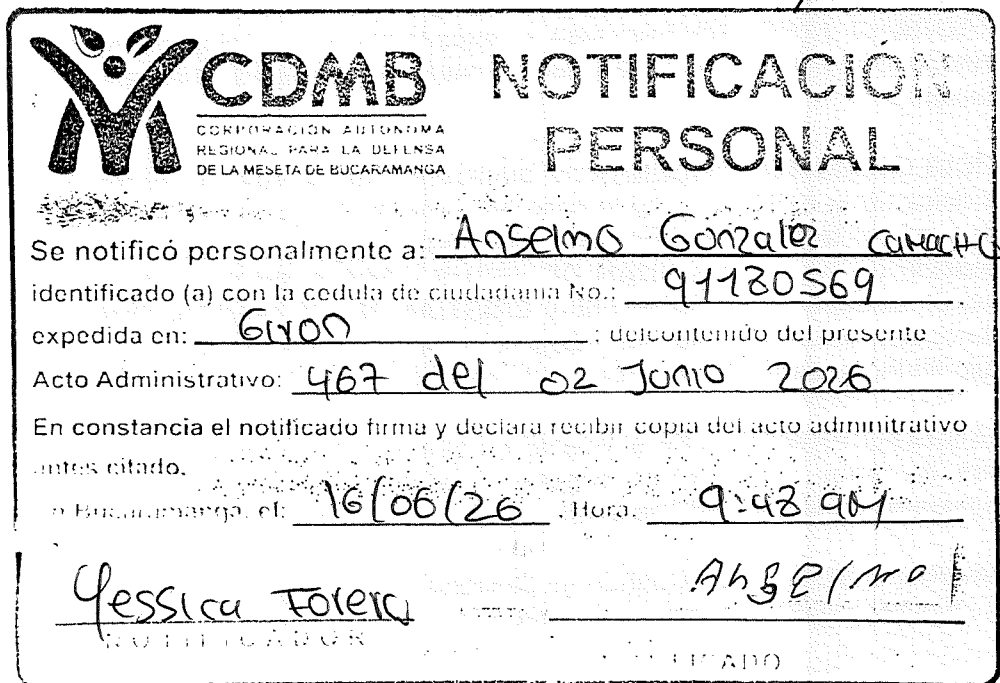 CDMB
CORPORACIÓN AUTÓNOMA
REGIONAL PARA LA DEFENSA
DE LA MESETA DE BUCARAMANGA
NOTIFICACIÓN
PERSONAL
Se notificó personalmente a: Anselmo Gonzalez CAMACHO
identificado (a) con la cedula de ciudadania No.: 91180569
expedida en: Giron ; delcontenido del presente
Acto Administrativo: 467 del 02 Junio 2026
En constancia el notificado firma y declara recibir copia del acto adminitrativo
antes citado.
n Bucaramanga, el: 16/06/26 , Hora. 9:48 AM
Yessica Forero Anselmo
NOTIFICADOR